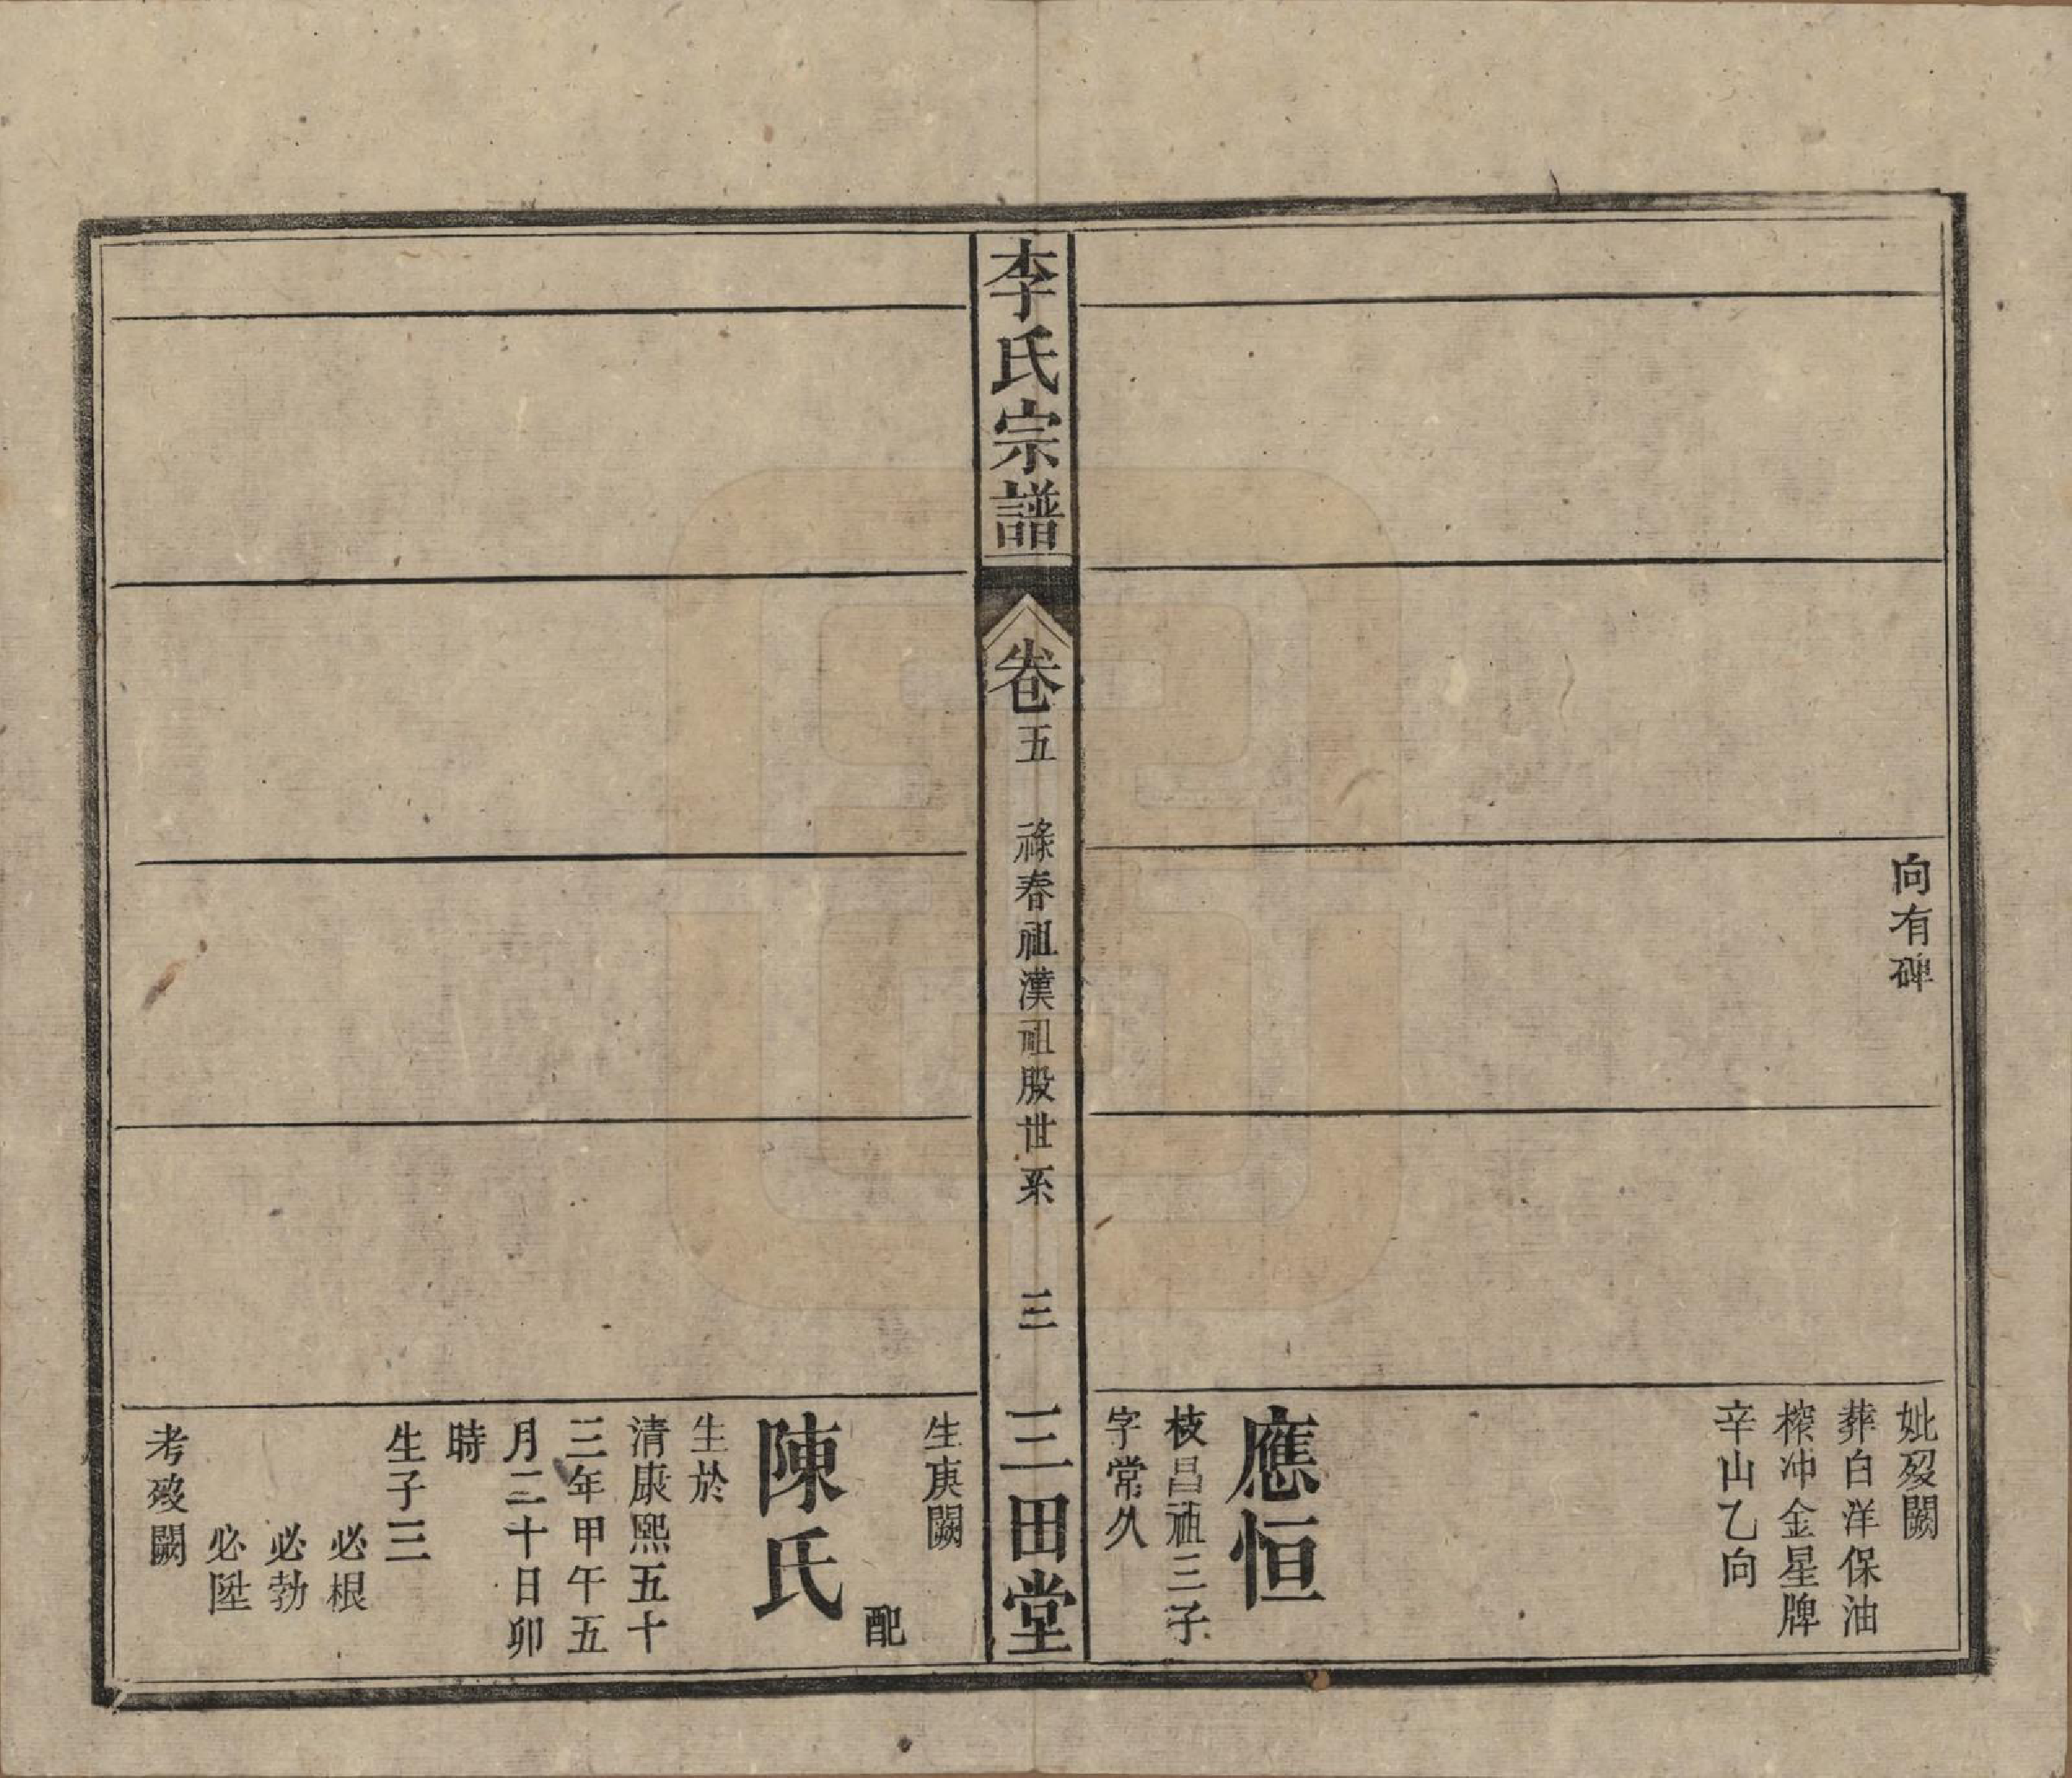 向有碑
妣歿闕
葬白洋保油
榨冲金星牌
辛山乙向
應恒
枝昌祖三子
字常久
李氏宗譜
卷五
祿春祖漢祖股世系
三
三田堂
生庚闕
配
陳氏
生於
清康熙五十
三年甲午五
月二十日卯
時
生子三
必根
必勃
必陞
考歿闕